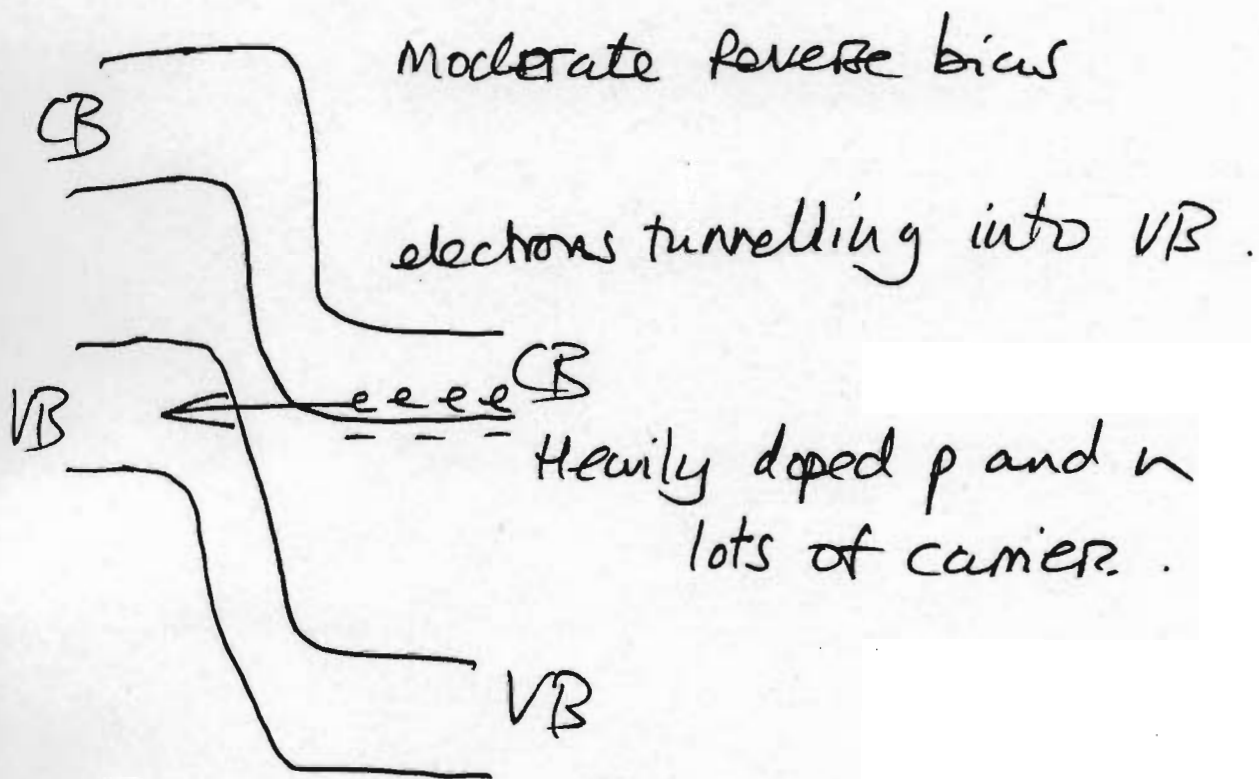 Moderate Reverse bias
CB
electrons tunnelling into VB.
CB
VB
e e e e
Heavily doped p and n
lots of carriers.
VB